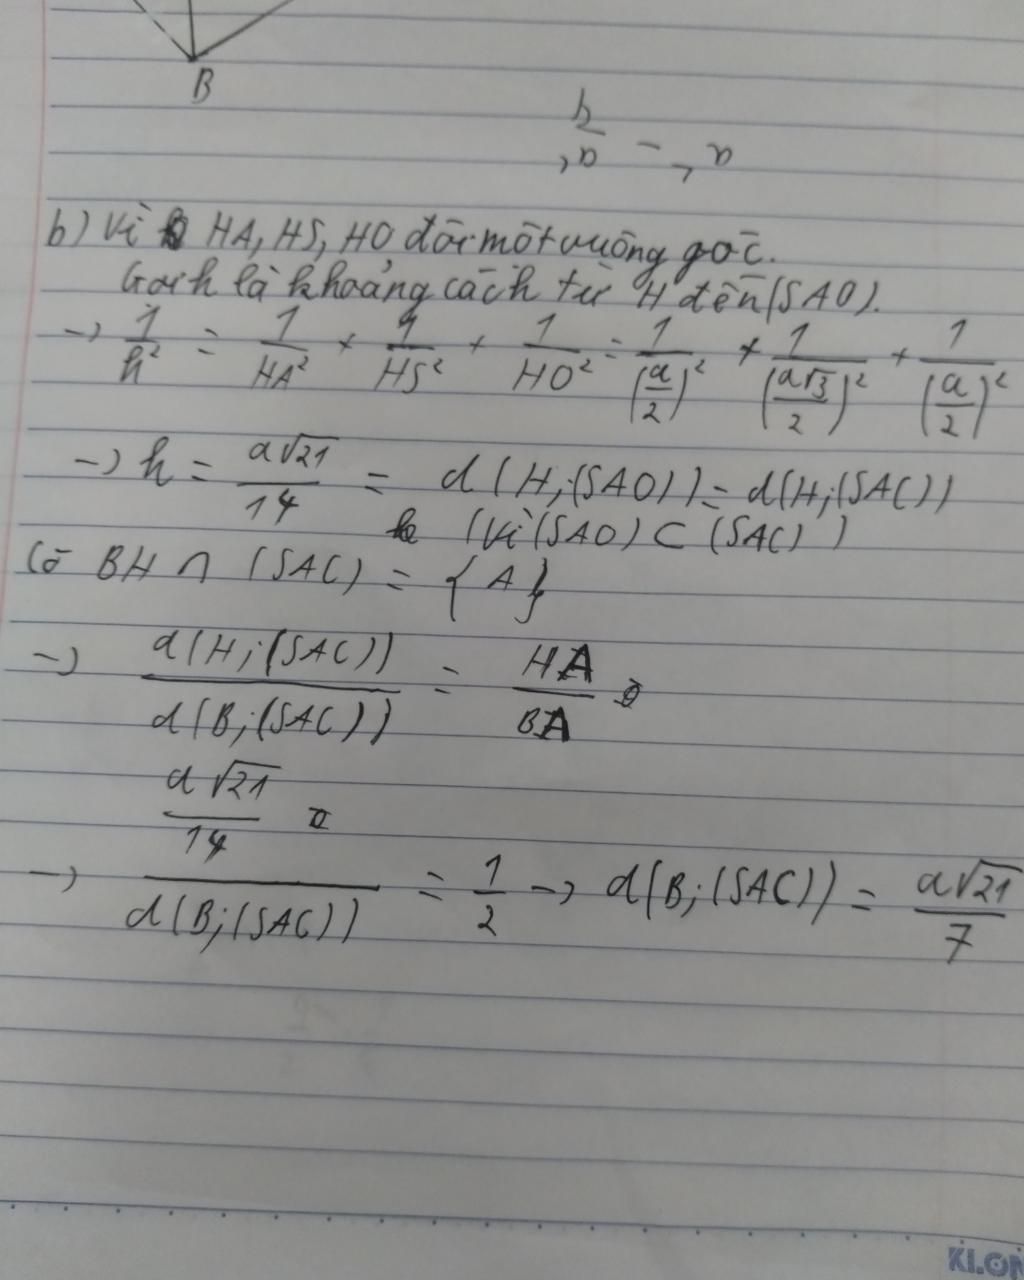 B
b) Vì HA, HS, HO đôi một vuông góc.
Gọi h là khoảng cách từ H đến (SAO).
→ 1/h² = 1/HA² + 1/HS² + 1/HO² = 1/(a/2)² + 1/(a√3/2)² + 1/(a/2)²
→ h = a√21/14 = d(H;(SAO)) = d(H;(SAC))
(Vì (SAO) ⊂ (SAC))
Có BH ∩ (SAC) = {A}
→ d(H;(SAC))/d(B;(SAC)) = HA/BA
→ (a√21/14)/d(B;(SAC)) = 1/2 → d(B;(SAC)) = a√21/7